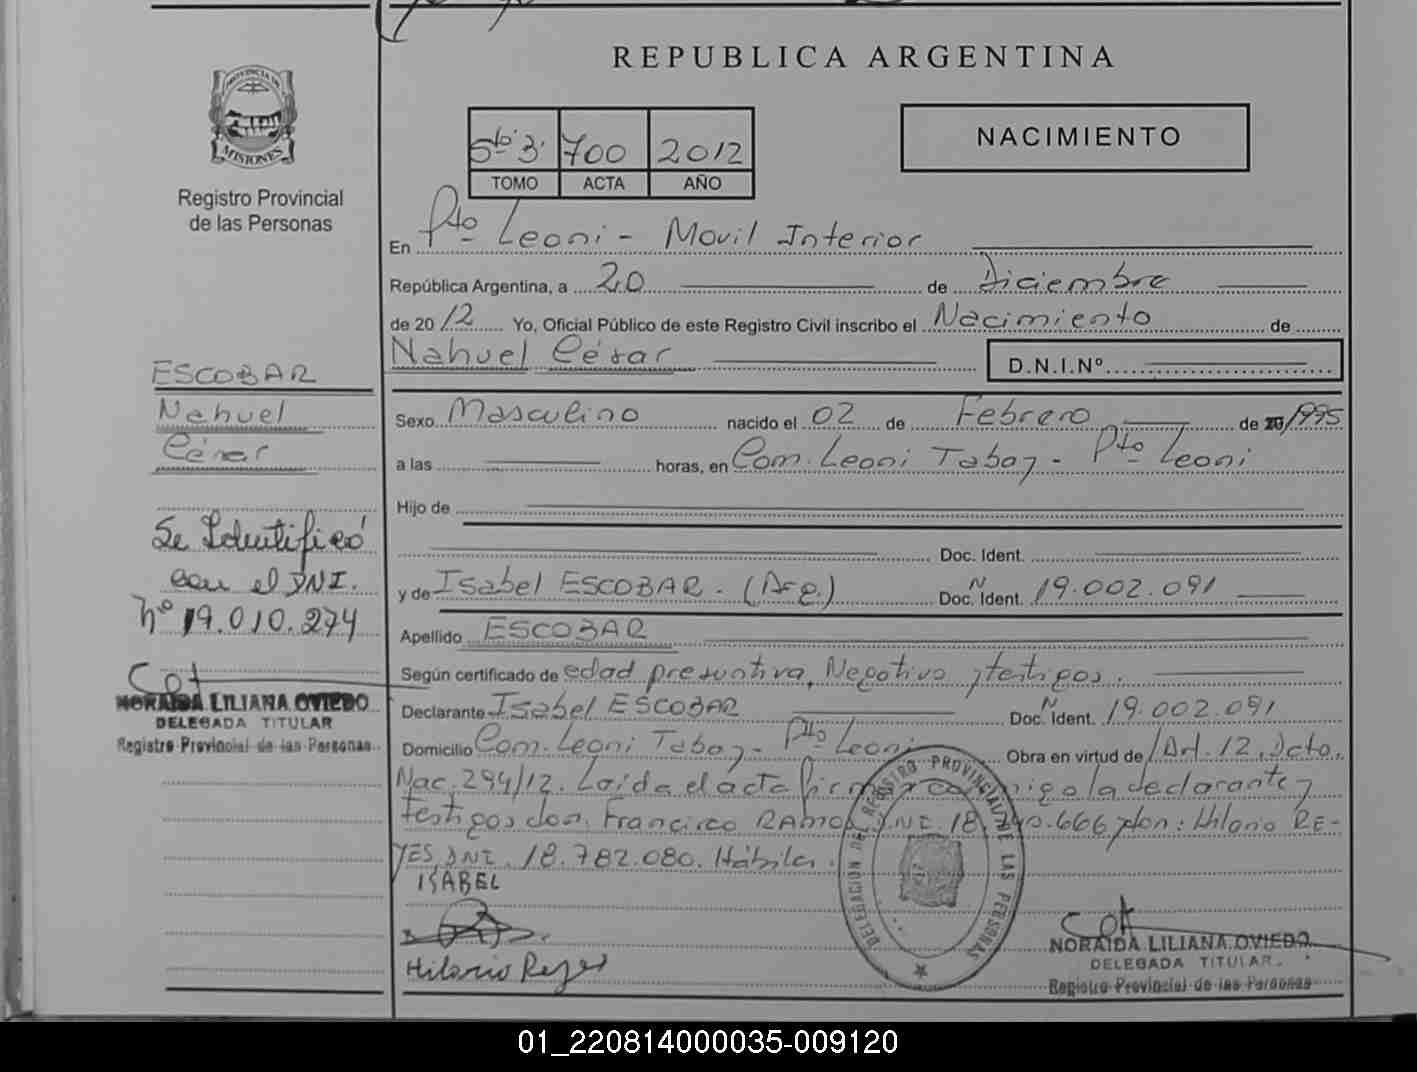 REPUBLICA ARGENTINA
PROVINCIA DE
MISIONES
Registro Provincial
de las Personas
5to 3. 700 2012
TOMO ACTA AÑO
NACIMIENTO
En Pto Leoni - Movil Interior
República Argentina, a 20 de Diciembre
de 2012 Yo, Oficial Público de este Registro Civil inscribo el Nacimiento de
Nahuel César
D.N.I.Nº
ESCOBAR
Nahuel
César
Se Identificó
con el DNI.
Nº 19.010.274
NORAIDA LILIANA OVIEDO
DELEGADA TITULAR
Registro Provincial de las Personas
Sexo Masculino nacido el 02 de Febrero de 1995
a las horas, en Com. Leoni Tabay - Pto Leoni
Hijo de
Doc. Ident.
y de Isabel ESCOBAR - (Arg.) Doc. N Ident. 19.002.091
Apellido ESCOBAR
Según certificado de edad presuntiva, Negativo y testigos.
Declarante Isabel ESCOBAR Doc. N Ident. 19.002.091
Domicilio Com. Leoni Tabay - Pto Leoni Obra en virtud de Art. 12, Dcto,
Nac. 294/12. Leída el acta la declarante y
testigos don: Francisco RAMOS DNI. 18. .666 y don: Hilario RE-
YES, DNI. 18.782.080. Hábiles.
ISABEL
Hilario Reyes
DELEGACION DEL REGISTRO PROVINCIAL DE LAS PERSONAS
NORAIDA LILIANA OVIEDO
DELEGADA TITULAR
Registro Provincial de las Personas
01_220814000035-009120